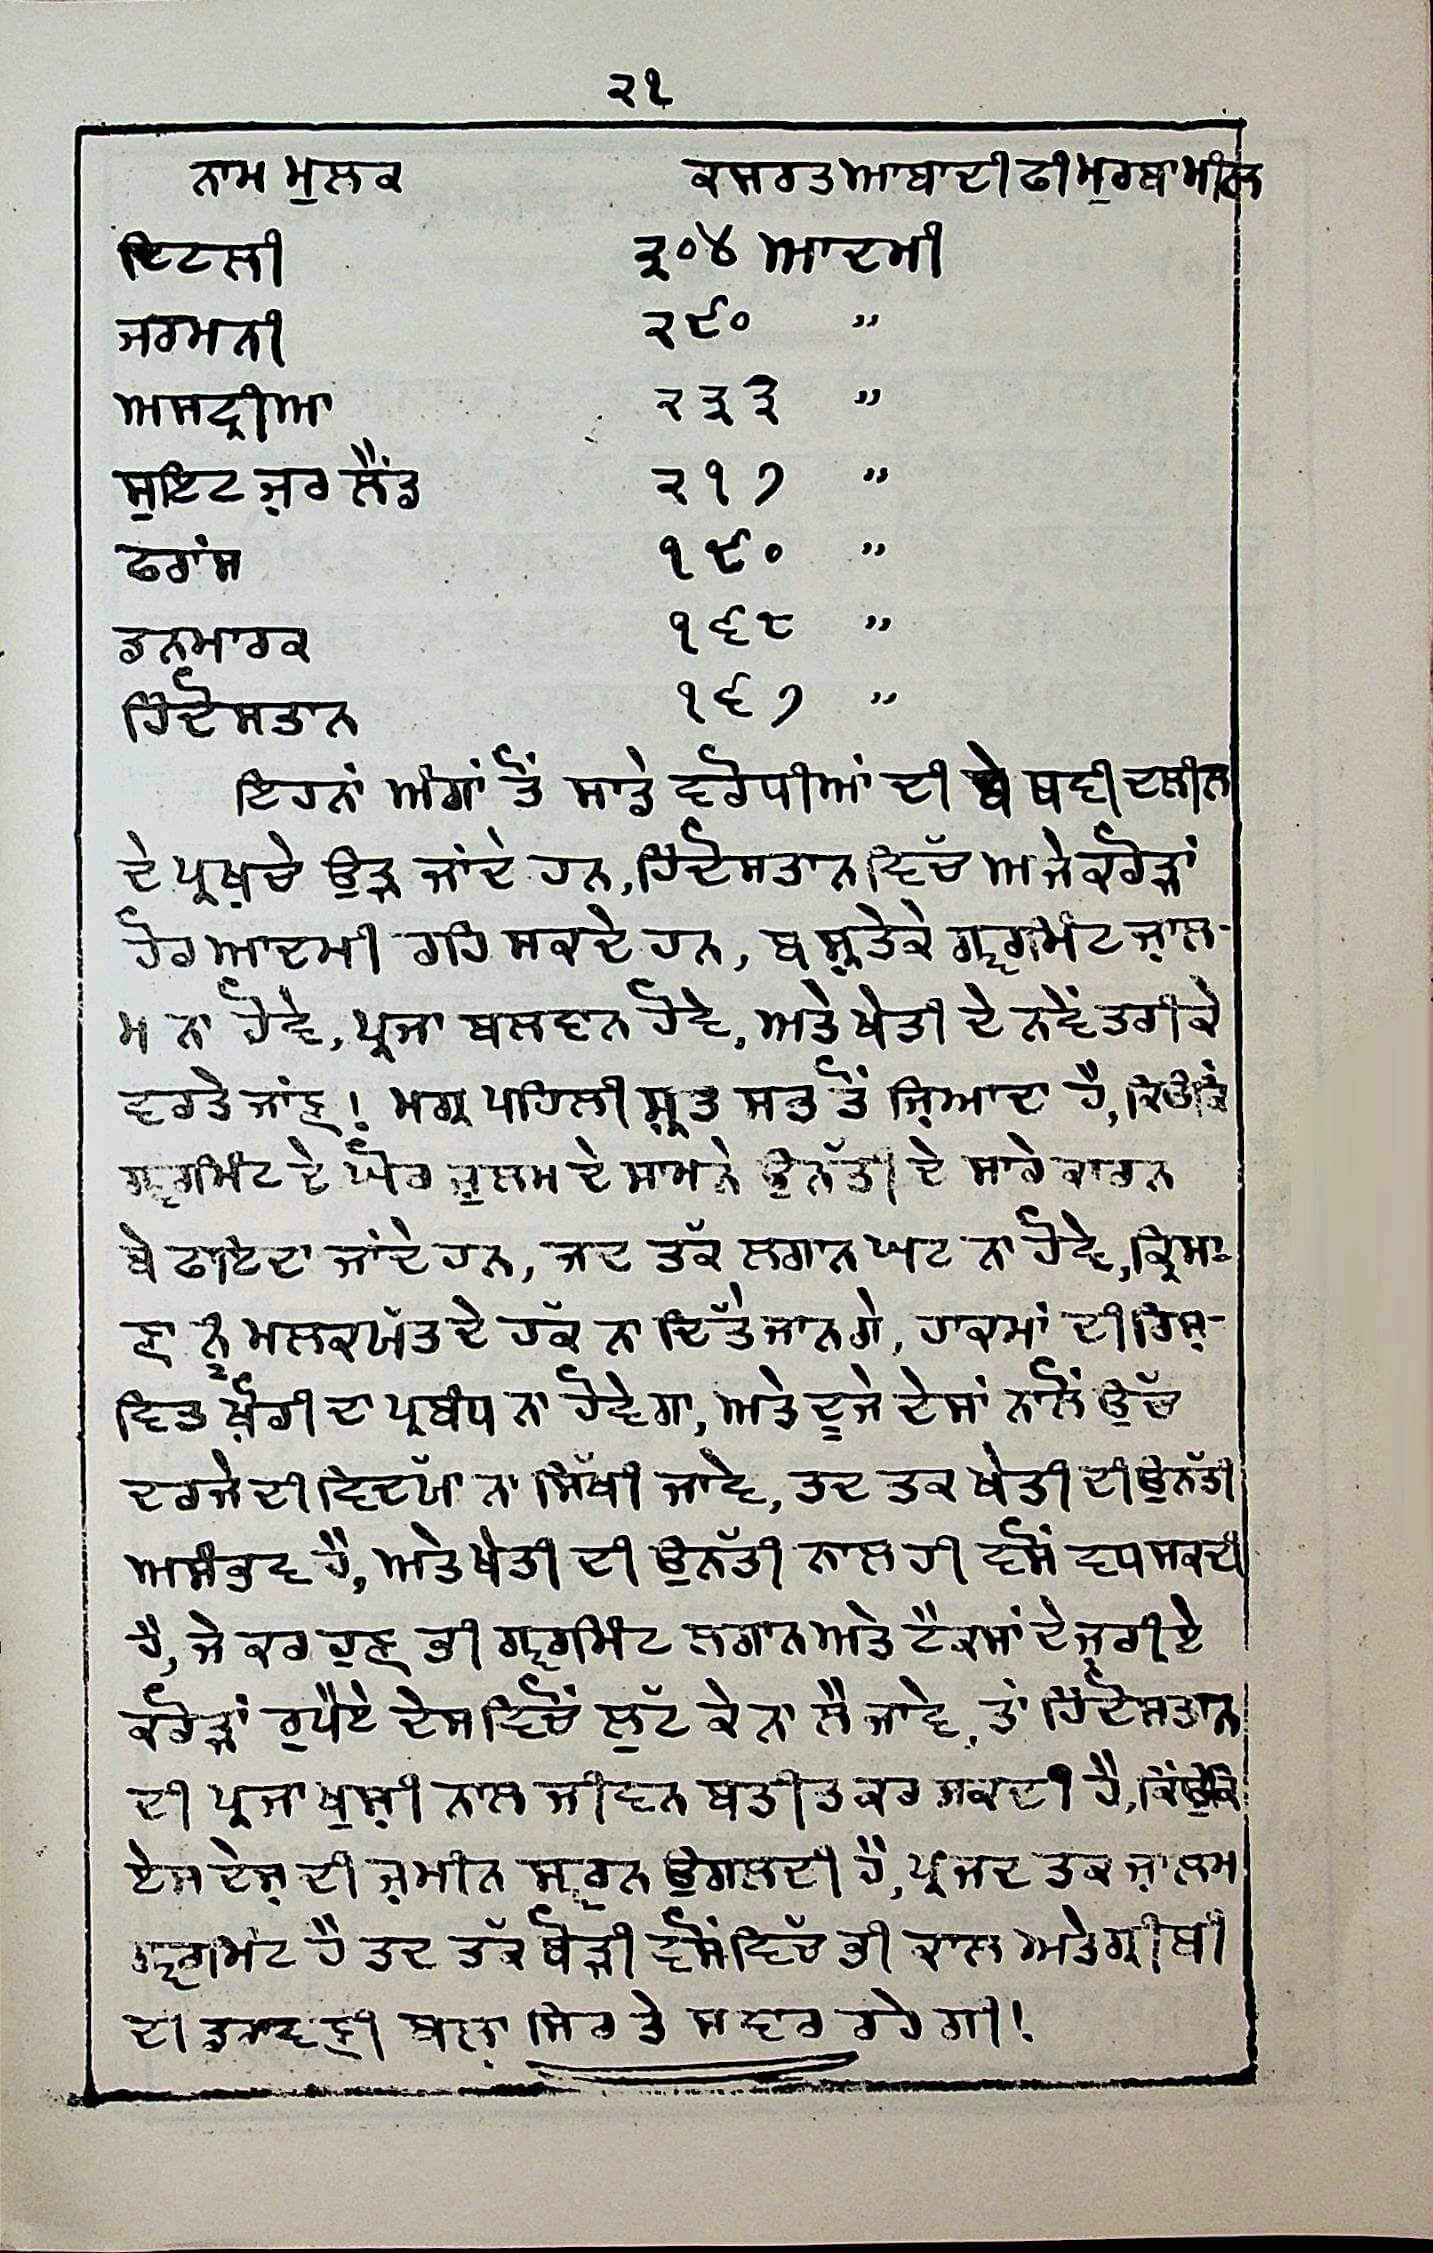 ੨੧
ਨਾਮ ਮੁਲਕ ਕਸਰਤ ਆਬਾਦੀ ਫੀ ਮੁਰਬਾ ਮੀਲ
ਇਟਲੀ ੩੦੪ ਆਦਮੀ
ਜਰਮਨੀ ੨੯੦ ”
ਅਸਟ੍ਰੀਆ ੨੩੩ ”
ਸੁਇਟਜ਼ਰਲੈਂਡ ੨੧੭ ”
ਫਰਾਂਸ ੧੯੦ ”
ਡਨਮਾਰਕ ੧੬੮ ”
ਹਿੰਦੋਸਤਾਨ ੧੬੭ ”
ਇਹਨਾਂ ਅੰਗਾਂ ਤੋਂ ਸਾਡੇ ਵਰੋਧੀਆਂ ਦੀ ਦਲੀਲ
ਦੇ ਪ੍ਰਖ਼ਚੇ ਉਡ ਜਾਂਦੇ ਹਨ, ਹਿੰਦੋਸਤਾਨ ਵਿੱਚ ਅਜੇ ਕਰੋੜਾਂ
ਹੋਰ ਆਦਮੀ ਰਹਿ ਸਕਦੇ ਹਨ, ਬਸ਼੍ਰਤੇਕੇ ਗ੍ਵਰਮਿੰਟ ਜ਼ਾਲ-
ਮ ਨਾ ਹੋਵੇ, ਪ੍ਰਜਾ ਬਲਵਾਨ ਹੋਵੇ, ਅਤੇ ਖੇਤੀ ਦੇ ਨਵੇਂ ਤਰੀਕੇ
ਵਰਤੇ ਜਾਂਣ! ਮਗ੍ਰ ਪਹਿਲੀ ਸ਼੍ਰਤ ਸਭ ਤੋਂ ਜ਼ਿਆਦਾ ਹੈ, ਕਿਉਂਕਿ
ਗ੍ਵਰਮਿੰਟ ਦੇ ਘੋਰ ਜ਼ੁਲਮ ਦੇ ਸਾਮਨੇ ਉਨੱਤੀ ਦੇ ਸਾਰੇ ਕਾਰਨ
ਬੇ ਫਾਇਦਾ ਜਾਂਦੇ ਹਨ, ਜਦ ਤੱਕ ਲਗਾਨ ਘਟ ਨਾ ਹੋਵੇ, ਕ੍ਰਿਸਾ-
ਣਾ ਨੂੰ ਮਲਕਯੱਤ ਦੇ ਹੱਕ ਨਾ ਦਿੱਤੇ ਜਾਨਗੇ, ਹਾਕਮਾਂ ਦੀ ਰਿਸ਼-
ਵਿਤ ਖ਼ੋਰੀ ਦਾ ਪ੍ਰਬੰਧ ਨਾ ਹੋਵੇਗਾ, ਅਤੇ ਦੂਜੇ ਦੇਸਾਂ ਨਾਲੋਂ ਉੱਚ
ਦਰਜੇ ਦੀ ਵਿਦਯਾ ਨਾ ਸਿੱਖੀ ਜਾਵੇ, ਤਦ ਤਕ ਖੇਤੀ ਦੀ ਉਨੱਤੀ
ਅਸੰਭਵ ਹੈ, ਅਤੇ ਖੇਤੀ ਦੀ ਉਨੱਤੀ ਨਾਲ ਹੀ ਵਸੋਂ ਵਧ ਸਕਦੀ
ਹੈ, ਜੇ ਕਰ ਹੁਣ ਭੀ ਗ੍ਵਰਮਿੰਟ ਲਗਾਨ ਅਤੇ ਟੈਕਸਾਂ ਦੇ ਜ਼੍ਰੀਏ
ਕਰੋੜਾਂ ਰੁਪੈਏ ਦੇਸ ਵਿਚੋਂ ਲੁੱਟ ਕੇ ਨਾ ਲੈ ਜਾਵੇ, ਤਾਂ ਹਿੰਦੋਸਤਾਨ
ਦੀ ਪ੍ਰਜਾ ਖੁਸ਼ੀ ਨਾਲ ਜੀਵਨ ਬਤੀਤ ਕਰ ਸਕਦੀ ਹੈ, ਕਿਉਂਕਿ
ਏਸ ਦੇਸ਼ ਦੀ ਜ਼ਮੀਨ ਉਗਲਦੀ ਹੈ, ਪ੍ਰ ਜਦ ਤਕ ਜ਼ਾਲਮ
ਗ੍ਵਰਮਿੰਟ ਹੈ ਤਦ ਤੱਕ ਥੋੜੀ ਵਸੋਂ ਵਿੱਚ ਭੀ ਕਾਲ ਅਤੇ ਗ੍ਰੀਬੀ
ਦੀ ਡਰਾਵਣੀ ਬਲਾ ਸਿਰ ਤੇ ਸਵਾਰ ਰਹੇਗੀ!